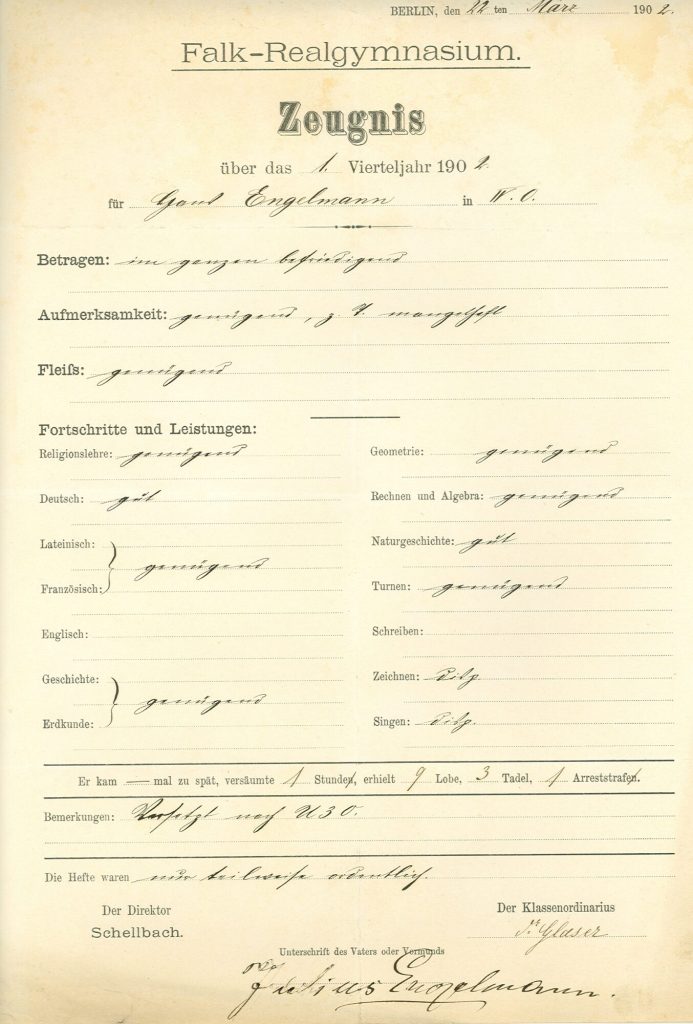 BERLIN, den 22 ten März 1902.
Falk-Realgymnasium.
Zeugnis
über das 1. Vierteljahr 1902
für Hans Engelmann in IV. O.
Betragen: im ganzen befriedigend
Aufmerksamkeit: genügend, z. T. mangelhaft
Fleiß: genügend
Fortschritte und Leistungen:
Religionslehre: genügend
Deutsch: gut
Lateinisch:
genügend
Französisch:
Englisch:
Geschichte:
genügend
Erdkunde:
Geometrie: genügend
Rechnen und Algebra: genügend
Naturgeschichte: gut
Turnen: genügend
Schreiben:
Zeichnen: disp.
Singen: disp.
Er kam — mal zu spät, versäumte 1 Stunden, erhielt 9 Lobe, 3 Tadel, 1 Arreststrafen.
Bemerkungen: Versetzt nach U 3 O.
Die Hefte waren nur teilweise ordentlich.
Der Direktor
Schellbach.
Der Klassenordinarius
Dr. Glaser
Unterschrift des Vaters oder Vormunds
Julius Engelmann.